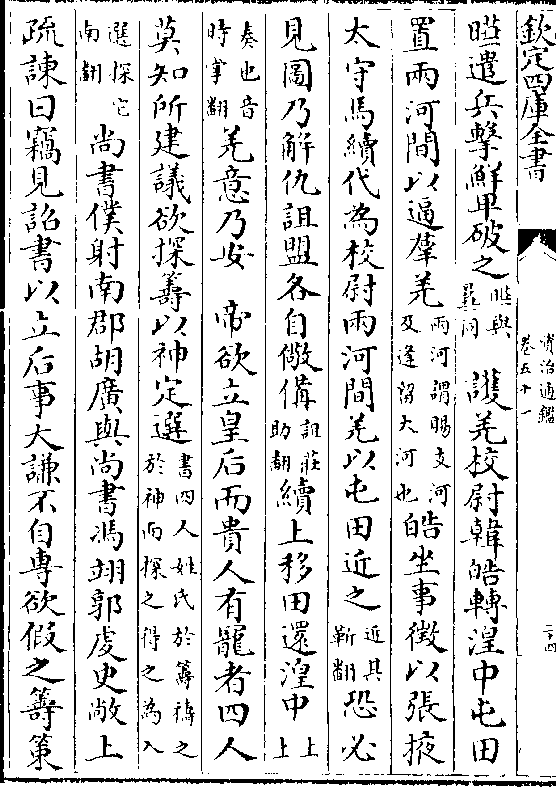 欽定四庫全書
資治通鑑
卷五十一
二十四
㬢遣兵擊鮮卑破之㬢與
㬢同護羌校尉韓皓轉湟中屯田
置兩河間以逼羣羌兩河謂賜支河
及逢留大河也皓坐事徵以張掖
太守馬續代為校尉兩河間羌以屯田近之近其
靳翻恐必
見圖乃解仇詛盟各自儆備詛莊
助翻續上移田還湟中上
時掌翻
奏也音羌意乃安 帝欲立皇后而貴人有寵者四人
莫知所建議欲探籌以神定選書四人姓氏於籌禱之
於神而探之得之為入
選探它
南翻尚書僕射南郡胡廣與尚書馮翊郭虔史敞上
疏諫曰竊見詔書以立后事大謙不自專欲假之籌策